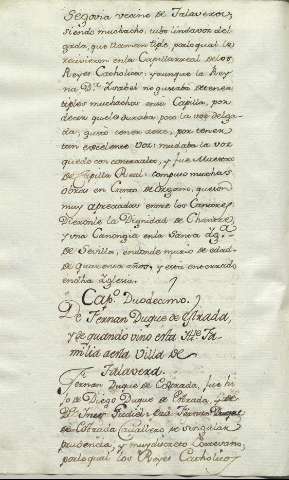 Segovia vecino de Talavera,
siendo muchacho, tubo linda voz del-
gada, que llaman tiple, por lo qual le
recivieron en la Capilla real de los
Reyes Catholicos; y aunque la Rey-
na D.ª Isabel no gustaba de tener
tiples muchachos en su Capilla, por
decir que lo duraba poco la voz delga-
da; gustó tener a este, por tener
tan excelente voz: mudaba la voz
quedo con contraalto, y fue Maestro
de Capilla Real: compuso muchas
obras en Canto de Organo, que son
muy apreciadas entre los Cantores
Dieronle la Dignidad de Chantre,
y una Canongia en la Santa Igl.ª
de Sevilla, en donde murio de edad
de quarenta años, y esta enterrado
en dha Iglesia.
Cap.º Duodecimo.
De Fernan Duque de Estrada,
y de quando vino esta Ill.e Fa-
milia a esta Villa de
Talavera.
Fernan Duque de Estrada, fue hi-
jo de Diego Duque de Estrada, y de
D.ª Ines Gudiel: era Fernan Duque
de Estrada Cavallero de singular
prudencia, y muy discreto Cortesano,
por lo qual los Reyes Catholicos